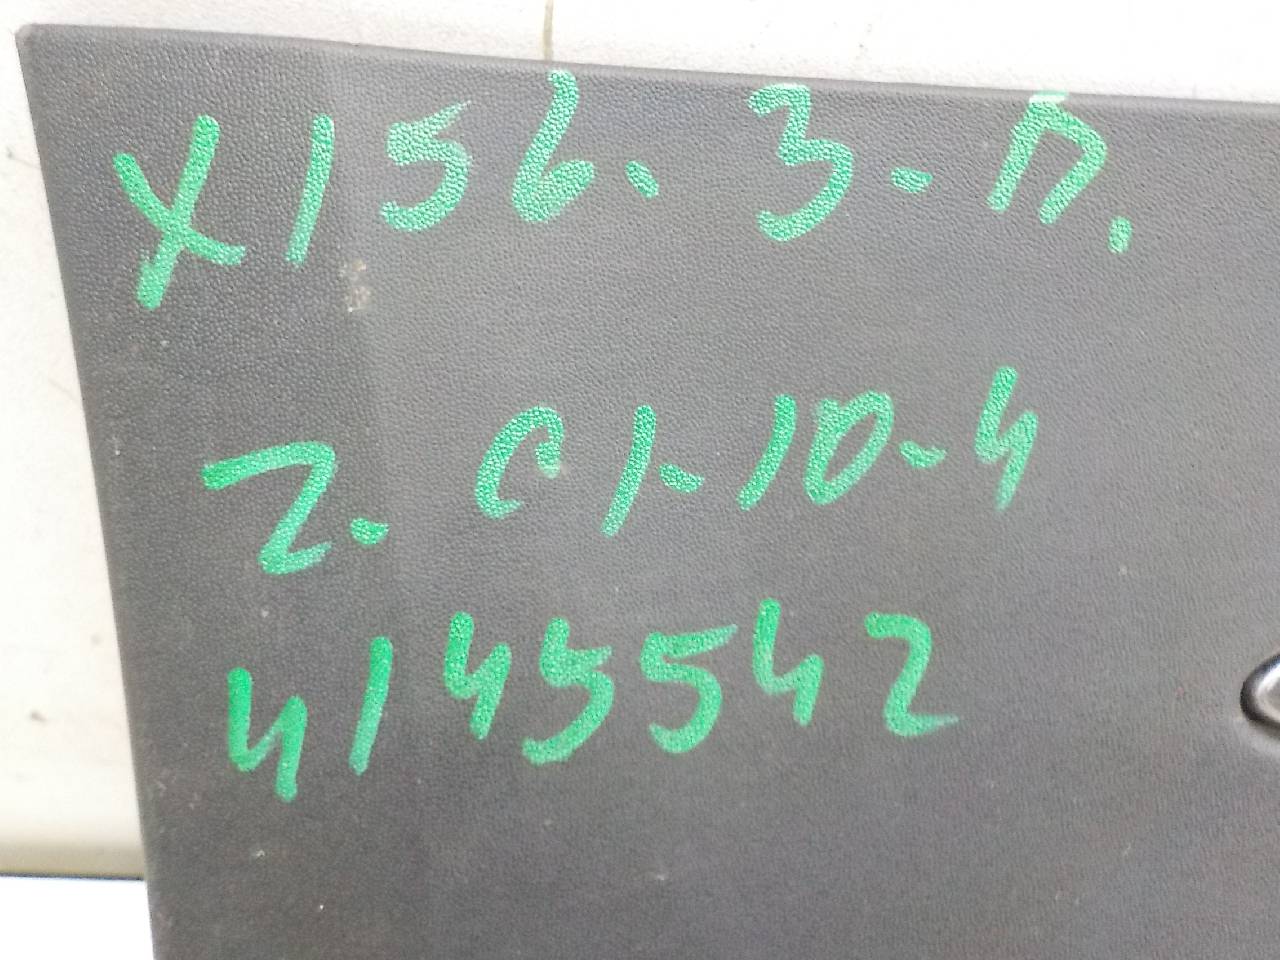 X156. З-П.
2. С1-10-4
4145542